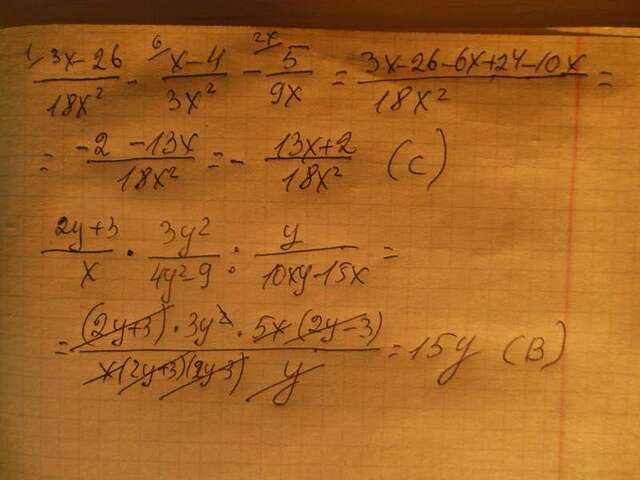 1/ (3x-26)/(18x²) - 6/ (x-4)/(3x²) - 2x/ 5/(9x) = (3x-26-6x+24-10x)/(18x²) =
= (-2-13x)/(18x²) = - (13x+2)/(18x²) (C)
(2y+3)/x · (3y²)/(4y²-9) : y/(10xy-15x) =
= ((2y+3)·3y²·5x(2y-3))/(x(2y+3)(2y-3)y) = 15y (B)